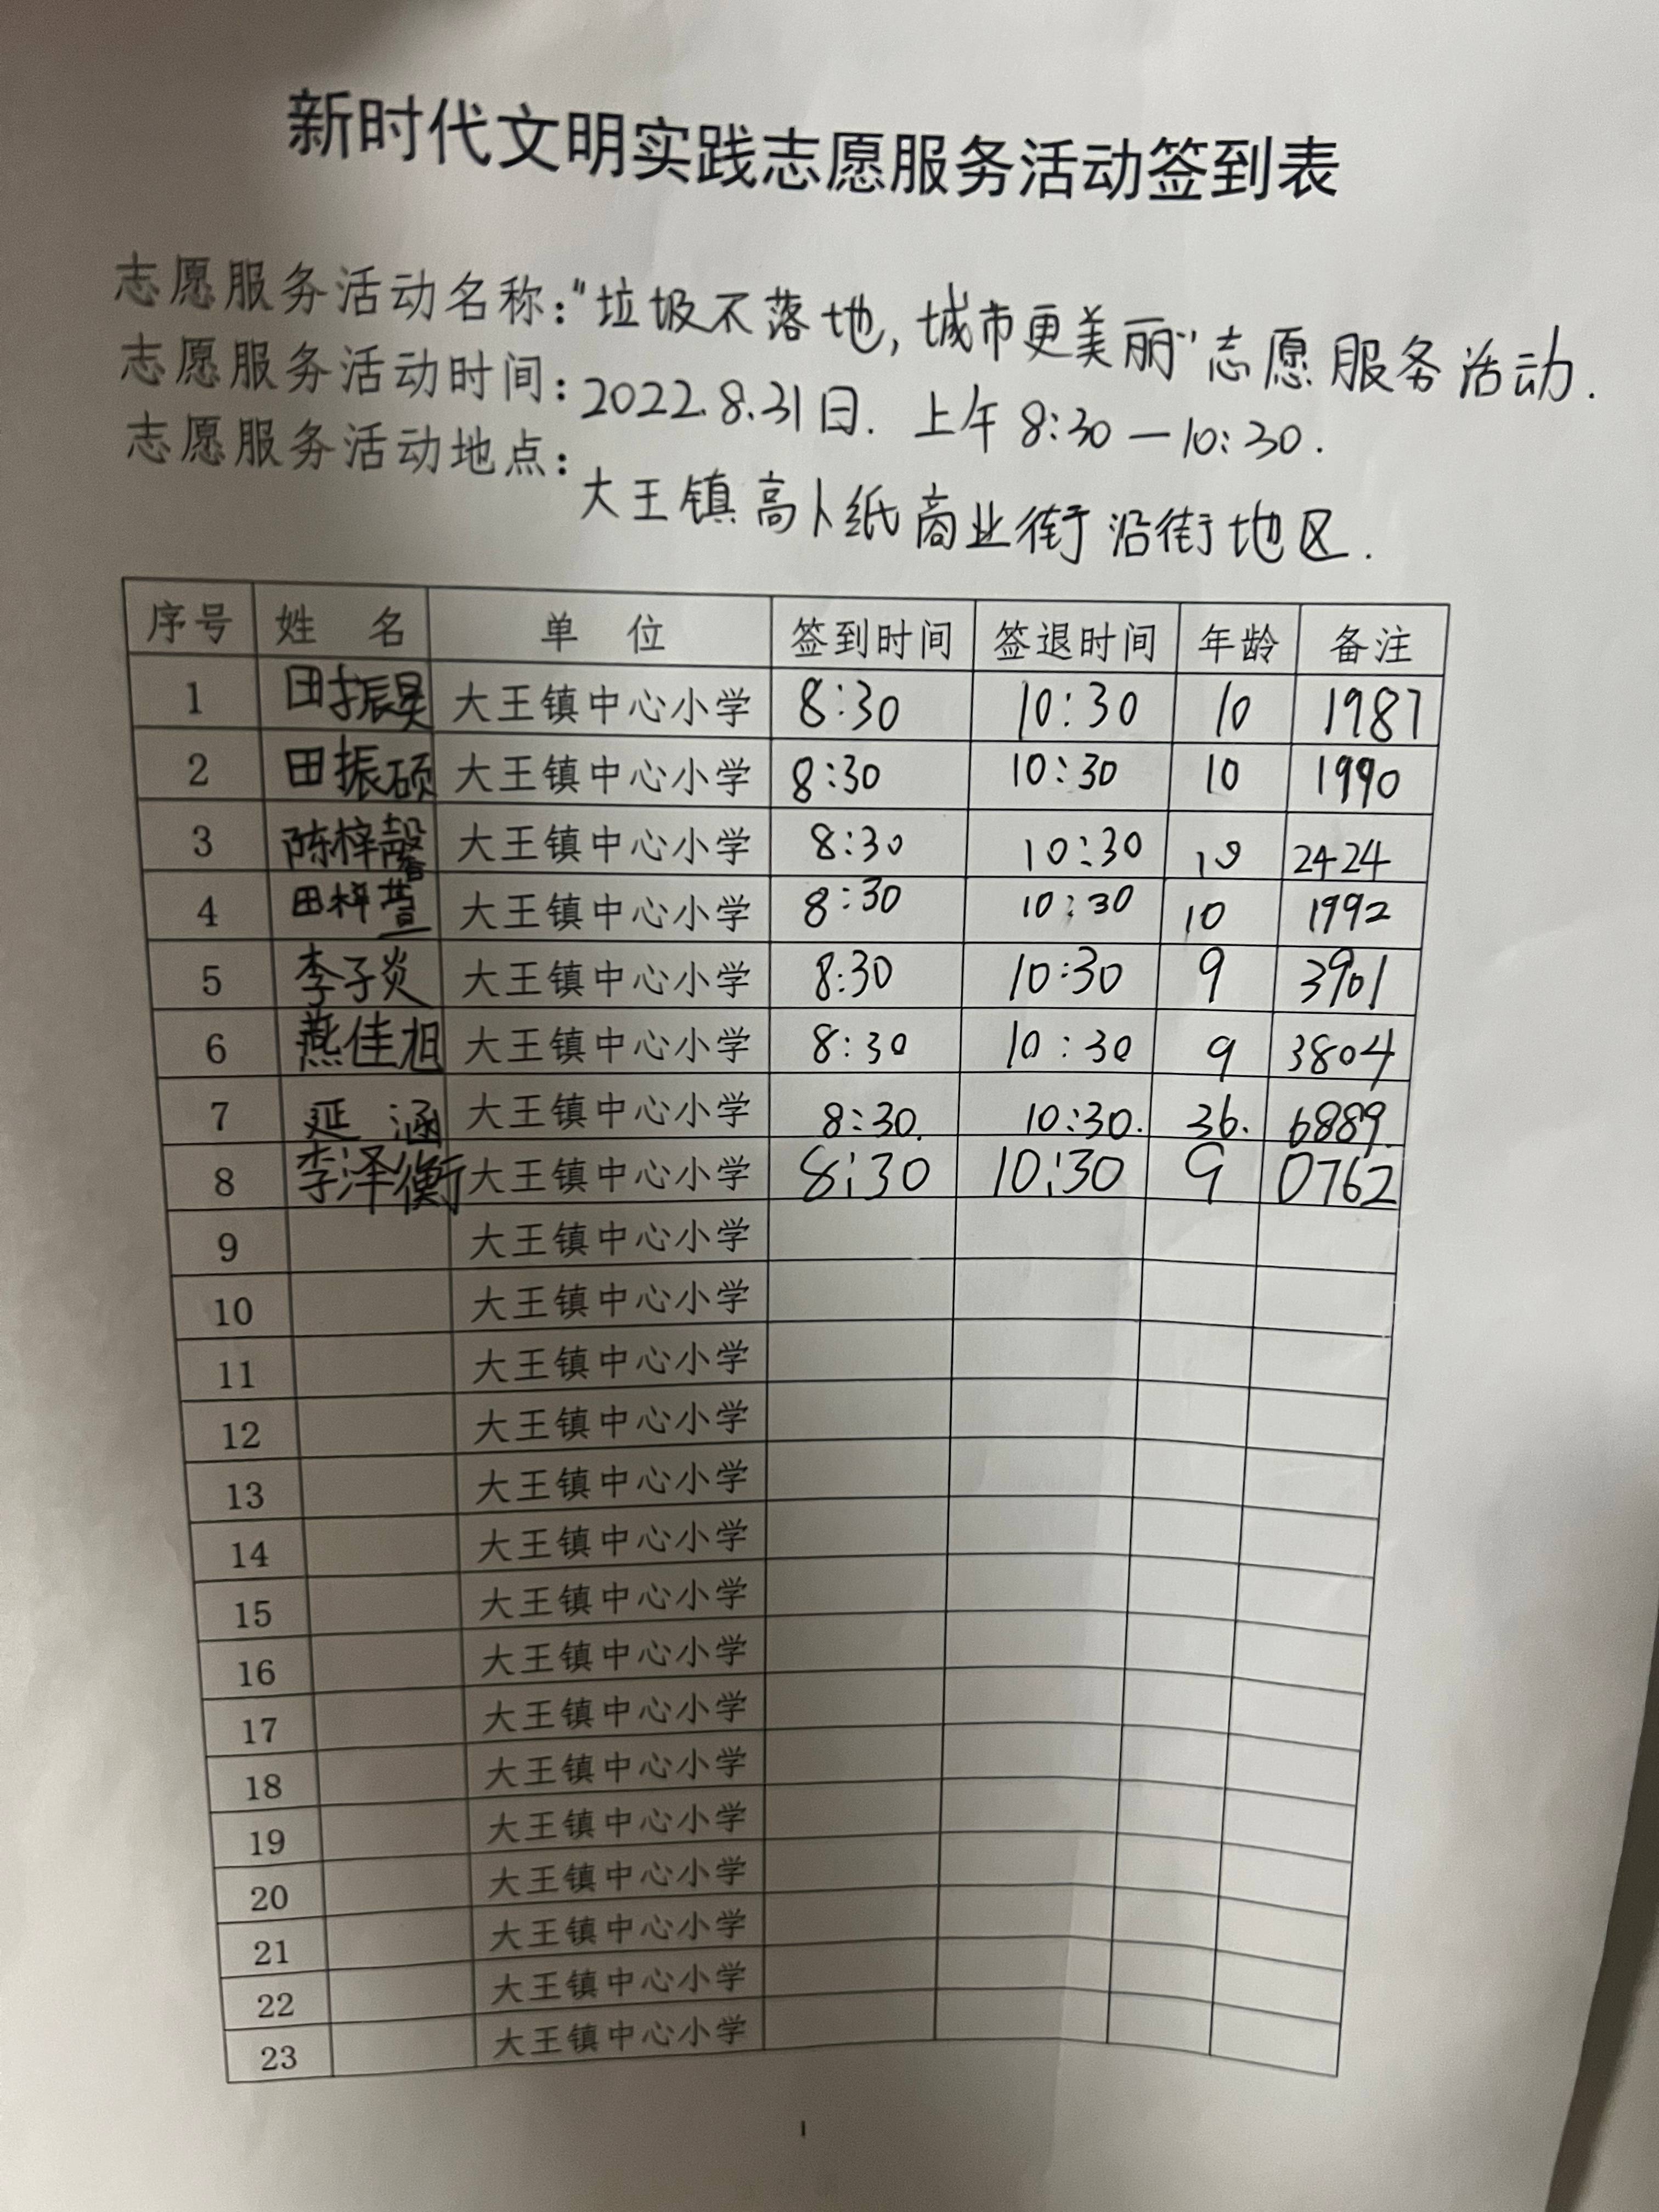 新时代文明实践志愿服务活动签到表
志愿服务活动名称:"垃圾不落地,城市更美丽"志愿服务活动.
志愿服务活动时间:2022.8.31日. 上午8:30—10:30.
志愿服务活动地点:大王镇高卜纸商业街沿街地区.
序号 姓 名 单 位 签到时间 签退时间 年龄 备注
1 田振昊 大王镇中心小学 8:30 10:30 10 1987
2 田振硕 大王镇中心小学 8:30 10:30 10 1990
3 陈梓馨 大王镇中心小学 8:30 10:30 10 2424
4 田梓萱 大王镇中心小学 8:30 10:30 10 1992
5 李子炎 大王镇中心小学 8:30 10:30 9 3901
6 燕佳旭 大王镇中心小学 8:30 10:30 9 3804
7 延 涵 大王镇中心小学 8:30. 10:30. 36. 6889.
8 李泽衡 大王镇中心小学 8:30 10:30 9 0762
9 大王镇中心小学
10 大王镇中心小学
11 大王镇中心小学
12 大王镇中心小学
13 大王镇中心小学
14 大王镇中心小学
15 大王镇中心小学
16 大王镇中心小学
17 大王镇中心小学
18 大王镇中心小学
19 大王镇中心小学
20 大王镇中心小学
21 大王镇中心小学
22 大王镇中心小学
23 大王镇中心小学
1